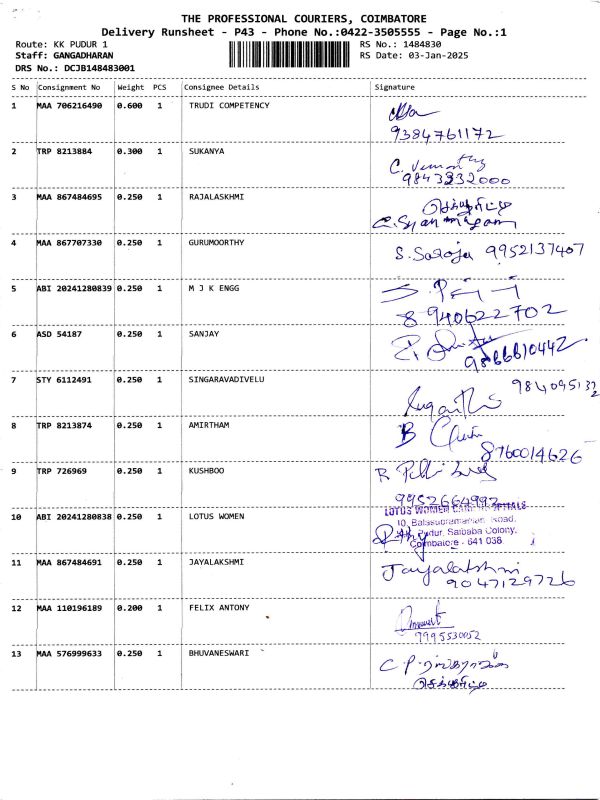 THE PROFESSIONAL COURIERS, COIMBATORE
Delivery Runsheet - P43 - Phone No.:0422-3505555 - Page No.:1
Route: KK PUDUR 1 RS No.: 1484830
Staff: GANGADHARAN RS Date: 03-Jan-2025
DRS No.: DCJB148483001
S No Consignment No Weight PCS Consignee Details Signature
1 MAA 706216490 0.600 1 TRUDI COMPETENCY
9384761172
2 TRP 8213884 0.300 1 SUKANYA
9843232000
3 MAA 867484695 0.250 1 RAJALASKHMI
செக்யூரிட்டி
4 MAA 867707330 0.250 1 GURUMOORTHY S. Saroja 9952137407
5 ABI 20241280839 0.250 1 M J K ENGG
8940622702
6 ASD 54187 0.250 1 SANJAY
9866610442
7 STY 6112491 0.250 1 SINGARAVADIVELU
8 TRP 8213874 0.250 1 AMIRTHAM B
8760014626
9 TRP 726969 0.250 1 KUSHBOO
9952664992
10 ABI 20241280838 0.250 1 LOTUS WOMEN LOTUS WOMEN CARE HOSPITALS
10, Balasubramaniam Road,
Pudur, Saibaba Colony,
Coimbatore - 641 038
11 MAA 867484691 0.250 1 JAYALAKSHMI Jayalakshmi
9047129726
12 MAA 110196189 0.200 1 FELIX ANTONY
9995530052
13 MAA 576999633 0.250 1 BHUVANESWARI
செக்யூரிட்டி